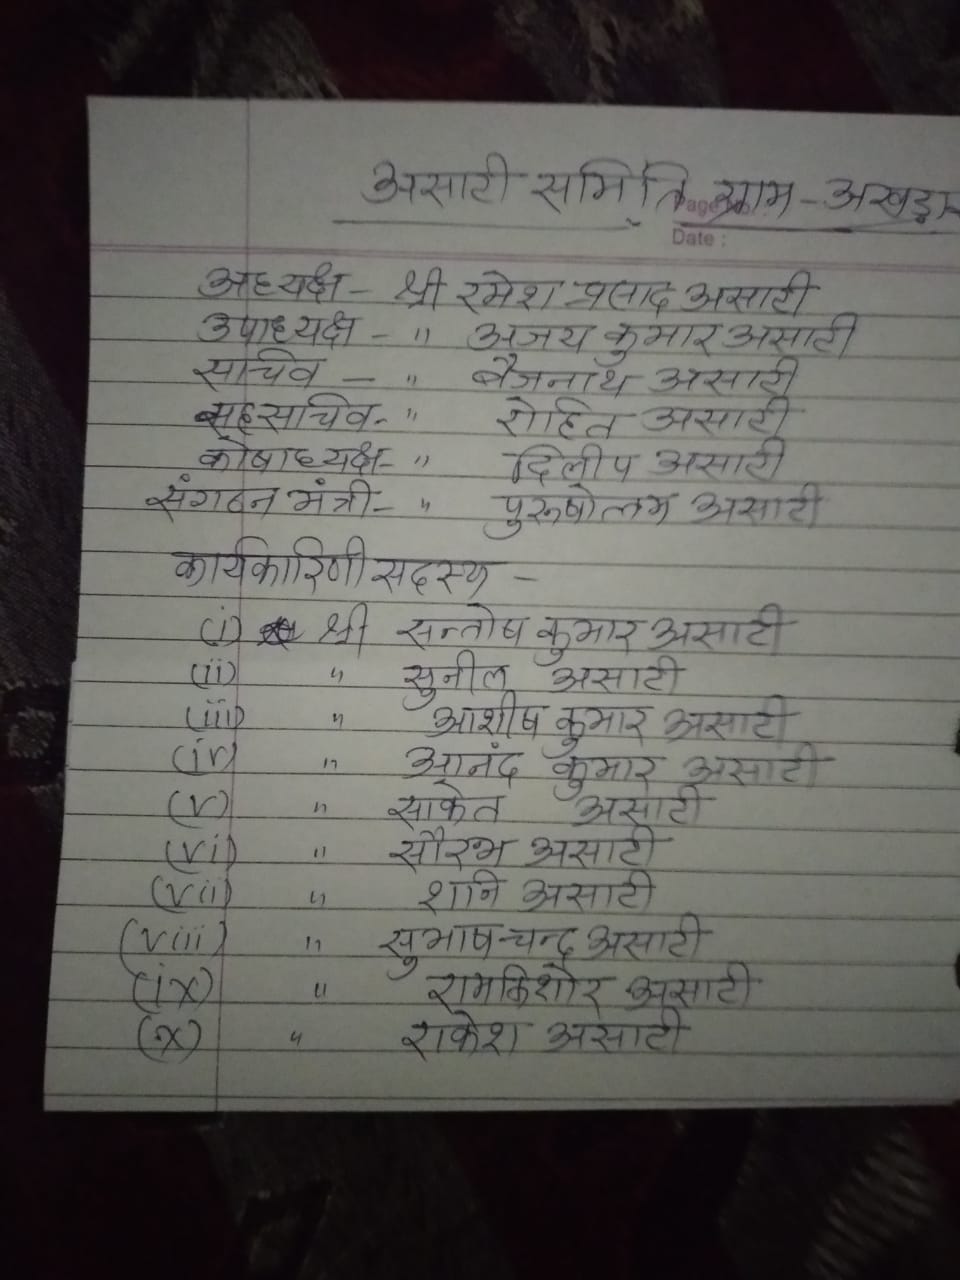 असाटी समिति ग्राम - अखड़ा
Page No.:
Date :
अध्यक्ष - श्री रमेश प्रसाद असाटी
उपाध्यक्ष - " अजय कुमार असाटी
सचिव - " बैजनाथ असाटी
सहसचिव - " रोहित असाटी
कोषाध्यक्ष - " दिलीप असाटी
संगठन मंत्री - " पुरूषोत्तम असाटी
कार्यकारिणी सदस्य -
(i) श्री सन्तोष कुमार असाटी
(ii) " सुनील असाटी
(iii) " आशीष कुमार असाटी
(iv) " आनंद कुमार असाटी
(v) " साकेत असाटी
(vi) " सौरभ असाटी
(vii) " शनि असाटी
(viii) " सुभाष चन्द्र असाटी
(ix) " रामकिशोर असाटी
(x) " राकेश असाटी